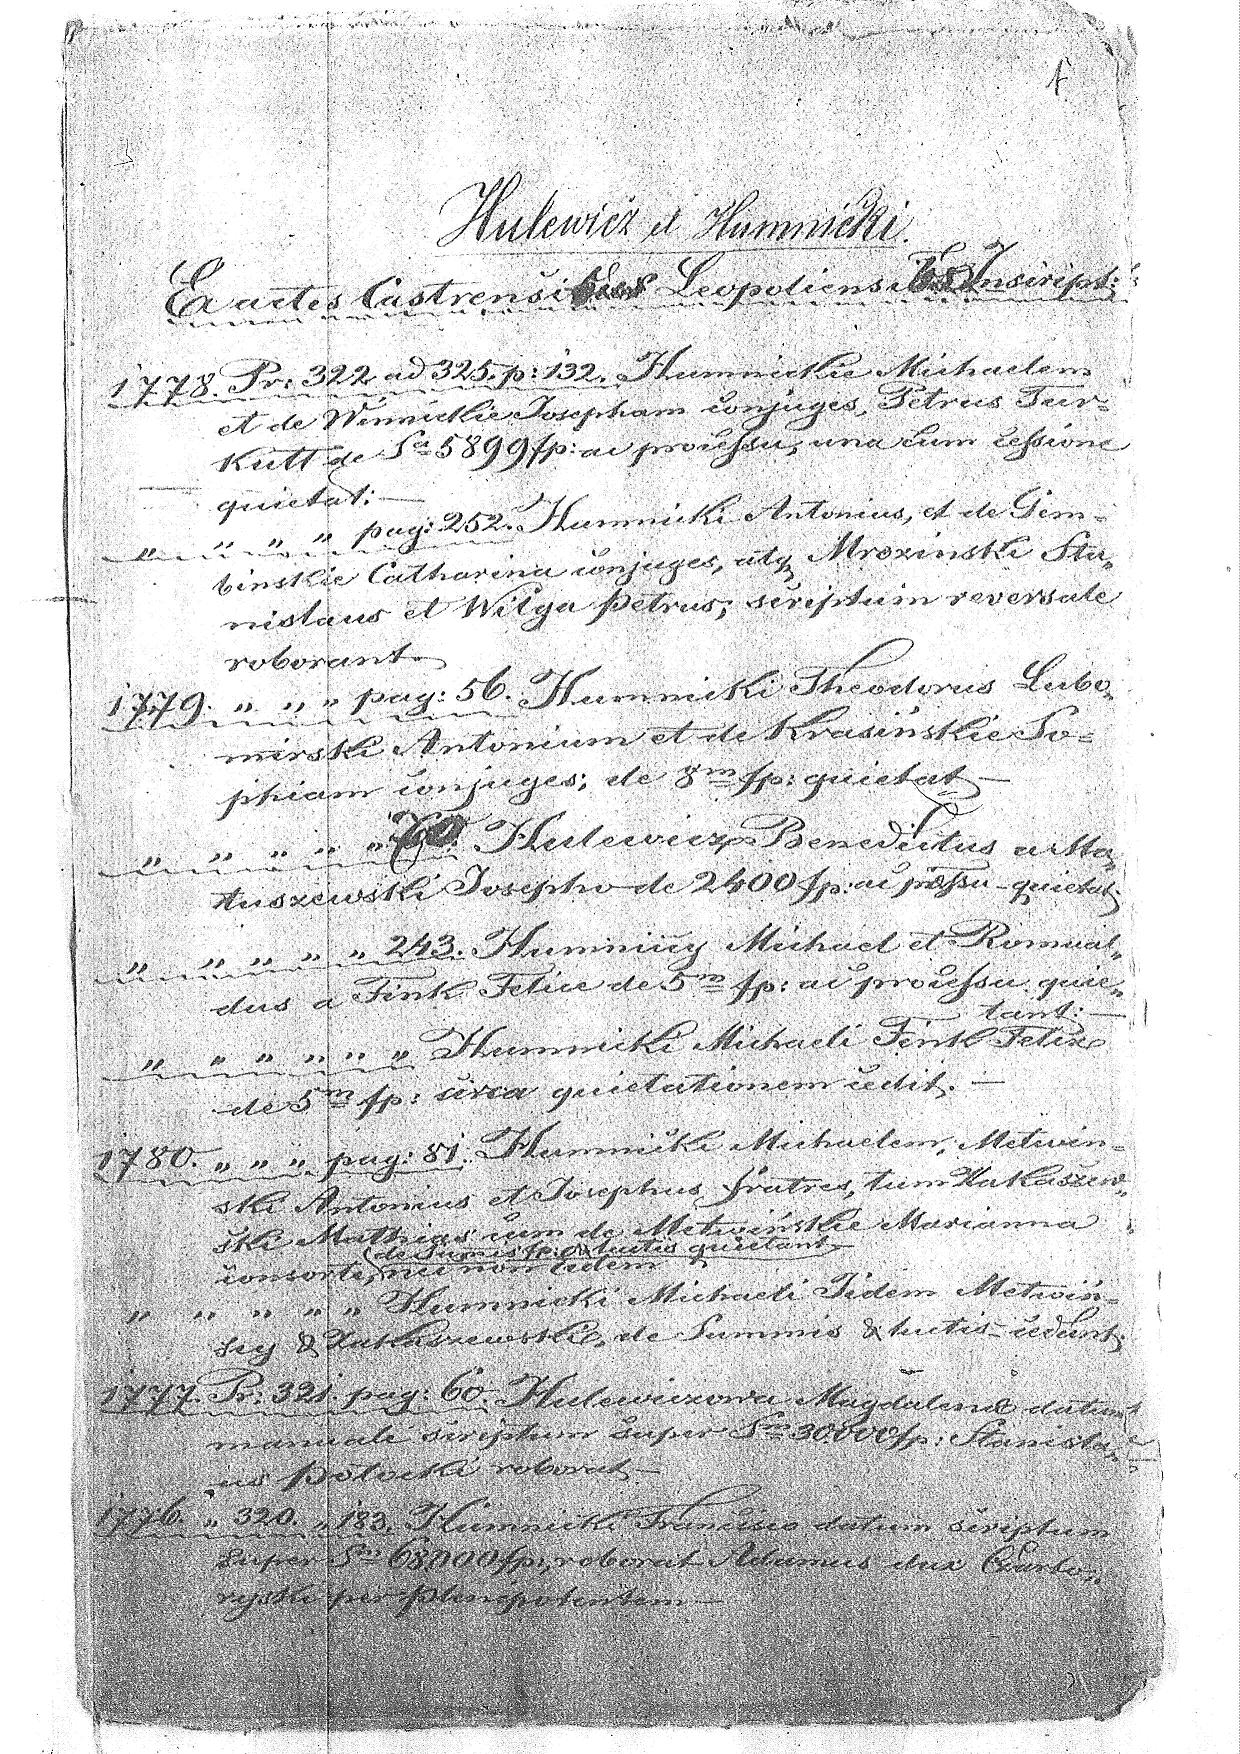 Hulewicz et Humnicki.
Ex actes Castrensi Leopoliens Inscript:
1778. Pr: 322 ad 325. p: 132. Humnickie Michaelem
et de Winnickie Josepham conjuges, Petrus Tur-
kutt de Sa 5899 fp: ac processu, una cum cessione
quietat: —
" " " " pag: 252. Humnicki Antonius, et de Gem-
binskie Catharina conjuges, atq Mrozinski Sta-
nislaus et Wilga Petrus, scriptum reversale
roborant
1779. " " " pag: 56. Humnicki Theodorus Lubo-
mirski Antonium et de Krasińskie So-
phiam conjuges; de 8m fp: quietat —
" " " " " Hulewicz Benedictus a Ma-
tuszewski Josepho de 2400 fp: ac pssu quietat
" " " " " 243. Humniccy Michael et Romual-
dus a Fink Felice de 5m fp: ac processu quie-
tant: —
" " " " " " Humnicki Michaeli Fink Felix
de 5m fp: circa quietationem cedit. —
1780. " " " pag: 81. Humnicki Michaelem, Metwin-
ski Antonius et Josephus fratres, tum Zakaszew-
ski Mathias cum de Metwińskie Marianna
de Sumis fp: & luctis quietant
consorte, nec non eidem
" " " " " Humnicki Michaeli Iidem Metwin-
scy & Zakaszewskie, de Summis & luctis cedunt
1777. Pr: 321. pag: 60. Hulewiczowa Magdalena datum
manuale scriptum super Sa 30000 fp: Stanisla-
us Potocki roborat —
1776. " 320. " 183. Humnicki Francisco datum scriptum
super Sm 68000 fp: roborat Adamus dux Czarto-
ryski per plenipotentem —